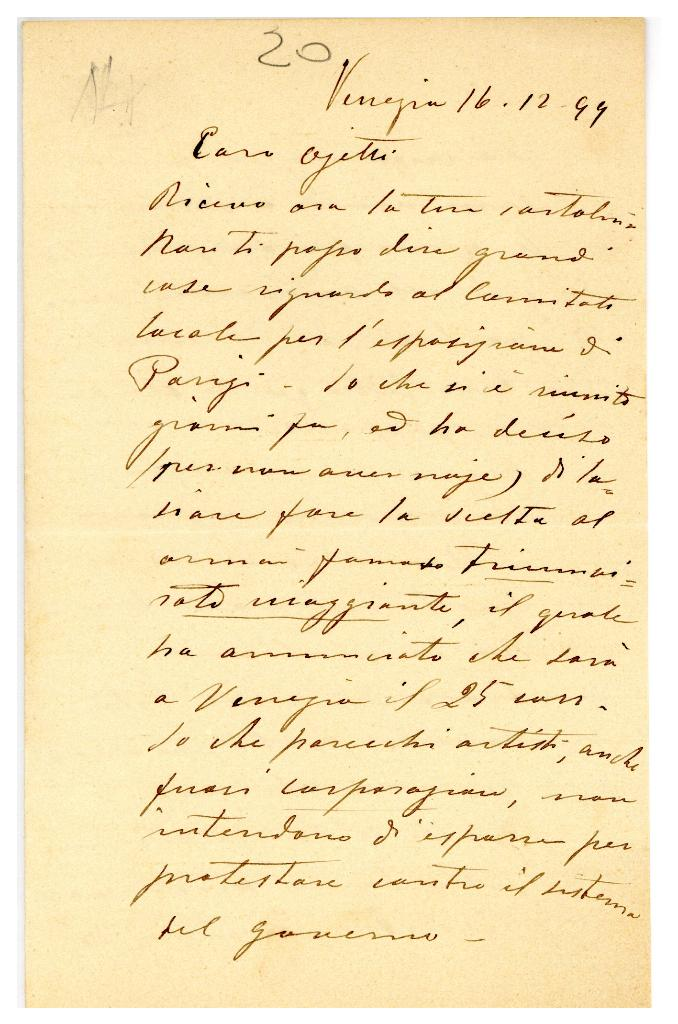 20
Venezia 16.12.99
Caro Ojetti
Ricevo ora la tua cartolina
Non ti posso dire grandi
cose riguardo al Comitato
locale per l'esposizione di
Parigi - So che si è riunito
giorni fa, ed ha deciso
(per non aver noje) di la=
sciare fare la scelta al
ormai famoso triumvi=
rato viaggiante, il quale
ha annunciato che sarà
a Venezia il 25 corr.
So che parecchi artisti, anche
fuori corporazione, non
intendono di esporre per
protestare contro il sistema
del governo -